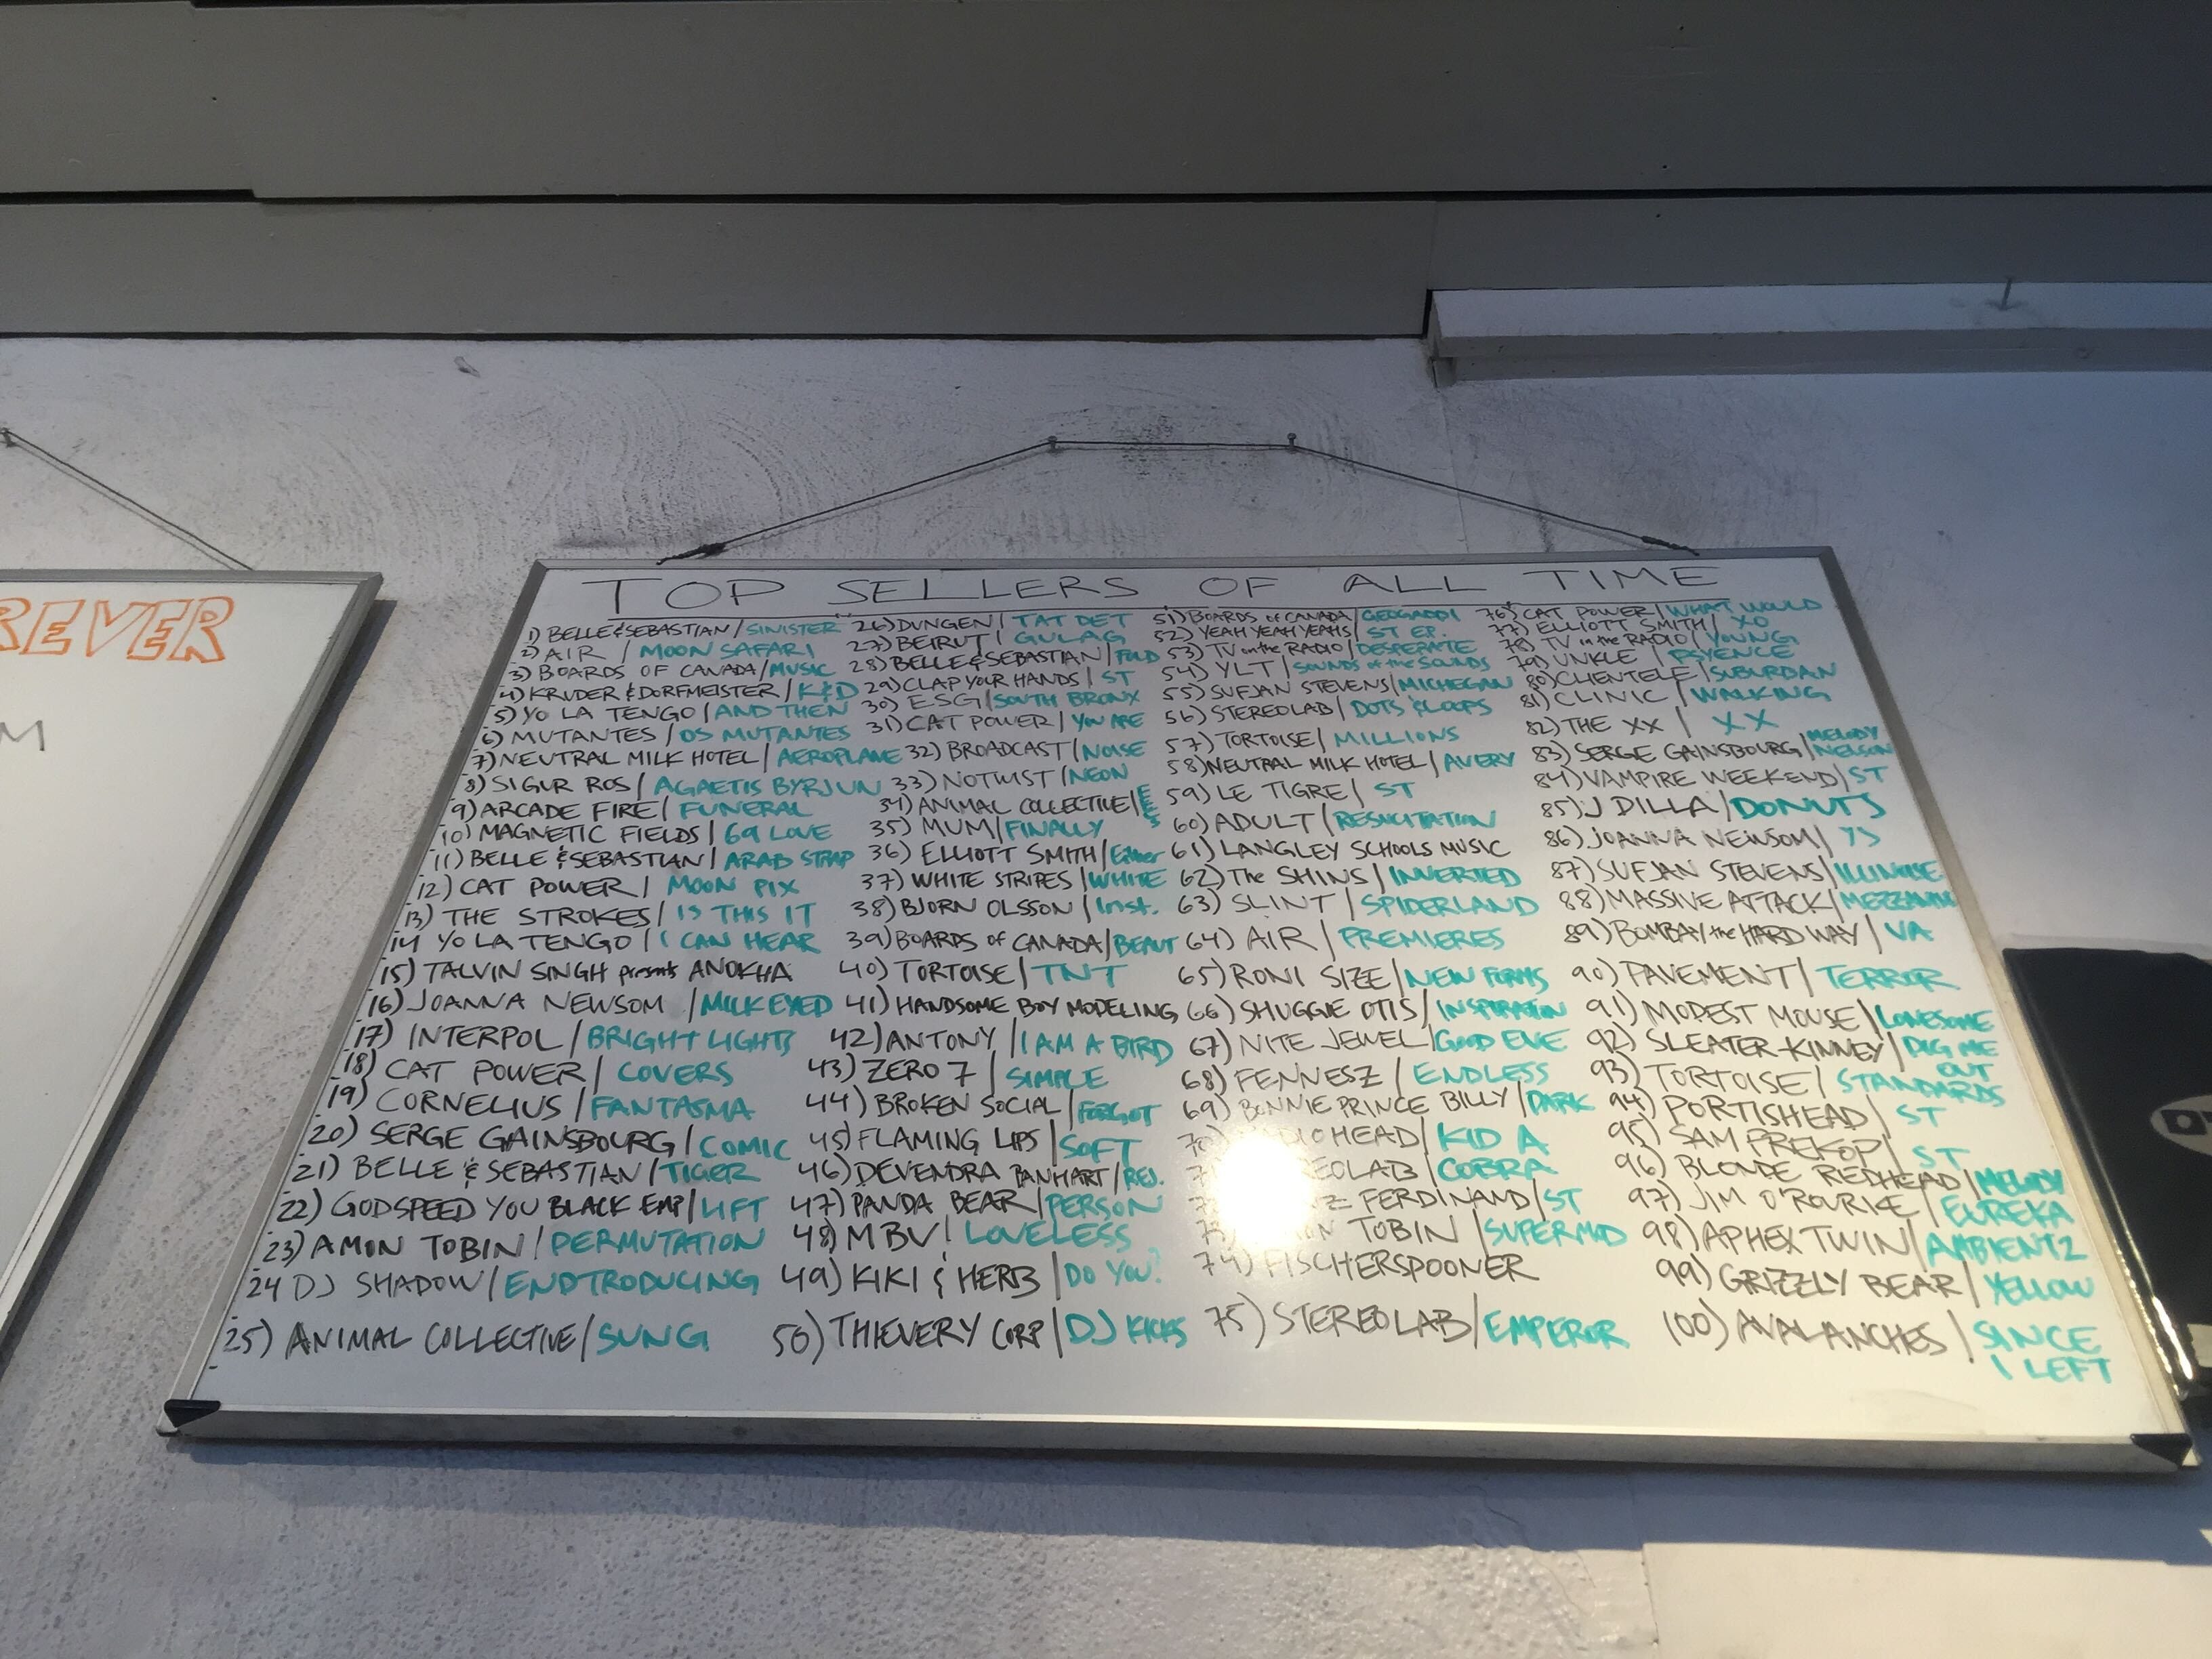 REVER
M
TOP SELLERS OF ALL TIME
1) BELLE & SEBASTIAN / SINISTER
2) AIR / MOON SAFARI
3) BOARDS OF CANADA / MUSIC
4) KRUDER & DORFMEISTER / K&D
5) YO LA TENGO / AND THEN
6) MUTANTES / OS MUTANTES
7) NEUTRAL MILK HOTEL / AEROPLANE
8) SIGUR ROS / AGAETIS BYRJUN
9) ARCADE FIRE / FUNERAL
10) MAGNETIC FIELDS / 69 LOVE
11) BELLE & SEBASTIAN / ARAB STRAP
12) CAT POWER / MOON PIX
13) THE STROKES / IS THIS IT
14 YO LA TENGO / I CAN HEAR
15) TALVIN SINGH presents ANOKHA
16) JOANNA NEWSOM / MILK EYED
17) INTERPOL / BRIGHT LIGHTS
18) CAT POWER / COVERS
19) CORNELIUS / FANTASMA
20) SERGE GAINSBOURG / COMIC
21) BELLE & SEBASTIAN / TIGER
22) GODSPEED YOU BLACK EMP / LIFT
23) AMON TOBIN / PERMUTATION
24 DJ SHADOW / ENDTRODUCING
25) ANIMAL COLLECTIVE / SUNG
26) DUNGEN / TAT DET
27) BEIRUT / GULAG
28) BELLE & SEBASTIAN / FOLD
29) CLAP YOUR HANDS / ST
30) ESG / SOUTH BRONX
31) CAT POWER / YOU ARE
32) BROADCAST / NOISE
33) NOTWIST / NEON
34) ANIMAL COLLECTIVE /
35) MUM / FINALLY
36) ELLIOTT SMITH / Either
37) WHITE STRIPES / WHITE
38) BJORN OLSSON / Inst.
39) BOARDS of CANADA / BEAUT
40) TORTOISE / TNT
41) HANDSOME BOY MODELING
42) ANTONY / I AM A BIRD
43) ZERO 7 / SIMPLE
44) BROKEN SOCIAL / FORGOT
45) FLAMING LIPS / SOFT
46) DEVENDRA BANHART / REJ.
47) PANDA BEAR / PERSON
48) MBV / LOVELESS
49) KIKI & HERB / DO YOU?
50) THIEVERY CORP / DJ KICKS
51) BOARDS of CANADA / GEOGADDI
52) YEAH YEAH YEAHS / ST EP.
53) TV on the RADIO / DESPERATE
54) YLT / SOUNDS of the SOUNDS
55) SUFJAN STEVENS / MICHEGAN
56) STEREOLAB / DOTS & LOOPS
57) TORTOISE / MILLIONS
58) NEUTRAL MILK HOTEL / AVERY
59) LE TIGRE / ST
60) ADULT / RESUCITATION
61) LANGLEY SCHOOLS MUSIC
62) The SHINS / INVERTED
63) SLINT / SPIDERLAND
64) AIR / PREMIERES
65) RONI SIZE / NEW FORMS
66) SHUGGIE OTIS / INSPIRATION
67) NITE JEWEL / GOOD EVE
68) FENNESZ / ENDLESS
69) BONNIE PRINCE BILLY / DARK
DIOHEAD / KID A
EOLAB / COBRA
Z FERDINAND / ST
TOBIN / SUPERMOD
74) FISCHERSPOONER
75) STEREOLAB / EMPEROR
76) CAT POWER / WHAT WOULD
77) ELLIOTT SMITH / XO
78) TV in the RADIO / YOUNG
79) UNKLE / PSYENCE
80) CLIENTELE / SUBURDAN
81) CLINIC / WALKING
82) THE XX / XX
83) SERGE GAINSBOURG / MELODY NELSON
84) VAMPIRE WEEKEND / ST
85) J DILLA / DONUTS
86) JOANNA NEWSOM / YS
87) SUFJAN STEVENS / ILLINOISE
88) MASSIVE ATTACK / MEZZANINE
89) BOMBAY the HARD WAY / VA
90) PAVEMENT / TERROR
91) MODEST MOUSE / LONESOME
92) SLEATER-KINNEY / DIG ME OUT
93) TORTOISE / STANDARDS
94) PORTISHEAD / ST
95) SAM PREKOP / ST
96) BLONDE REDHEAD / MELODY
97) JIM O'ROURKE / EUREKA
98) APHEX TWIN / AMBIENT 2
99) GRIZZLY BEAR / YELLOW
100) AVALANCHES / SINCE
I LEFT